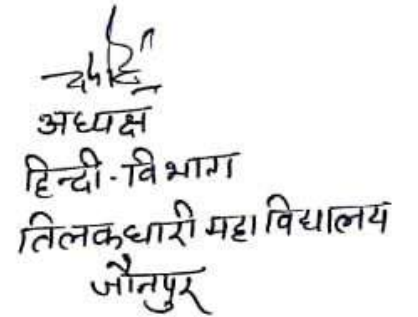 अध्यक्ष
हिन्दी-विभाग
तिलकधारी महाविद्यालय
जौनपुर